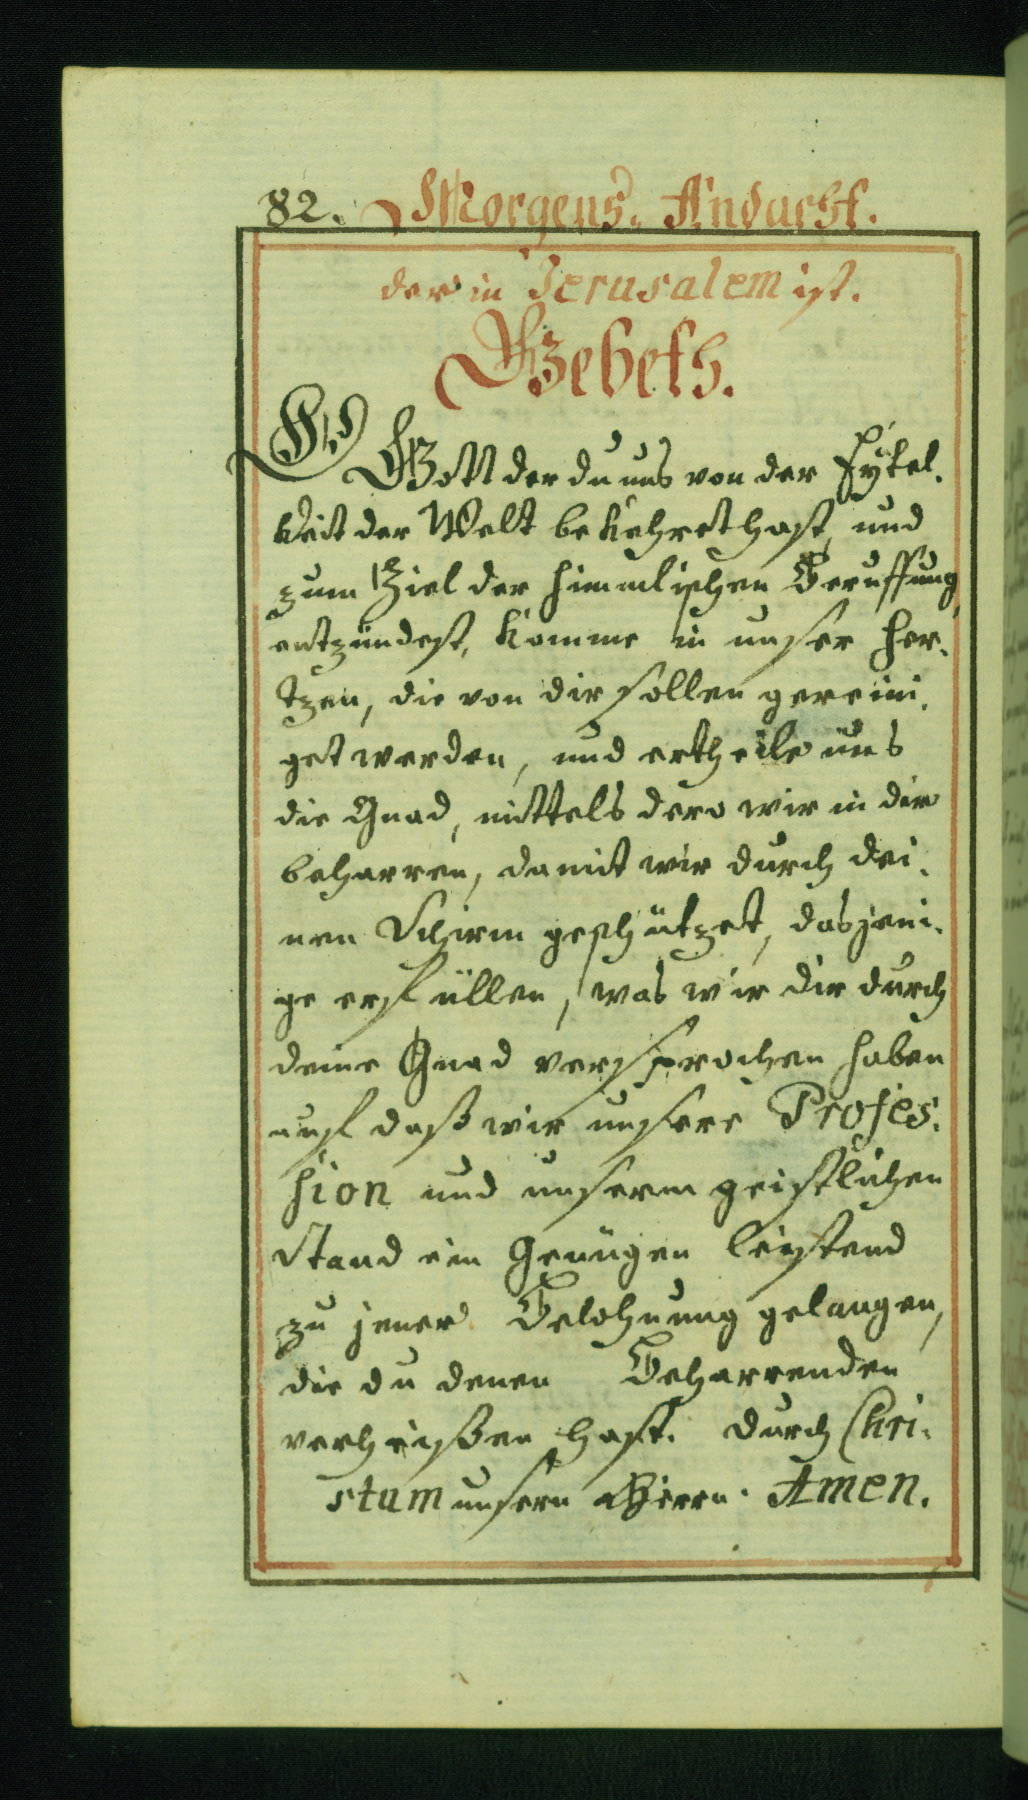 82. Morgens. Andacht.
der in Jerusalem ist.
Gebeth.
O Gott der du uns von der Eytel.
keit der Welt bekehret hast, und
zum Ziel der himmlischen Beruffung
entzündest, komme in unser Her.
tzen, die von dir sollen gereini.
get werden, und ertheile uns
die Gnad, mittels dero wir in dir
beharren, damit wir durch dei.
nen Schirm geschützet, dasjeni.
ge erfüllen, was wir dir durch
deine Gnad versprochen haben
auf daß wir unsere Profes.
sion und unserm geistlichen
Stand ein Genügen leistend
zu jener Belohnung gelangen,
die du denen Beharrenden
verheißen hast. durch Chri.
stum unsern Herrn. Amen.